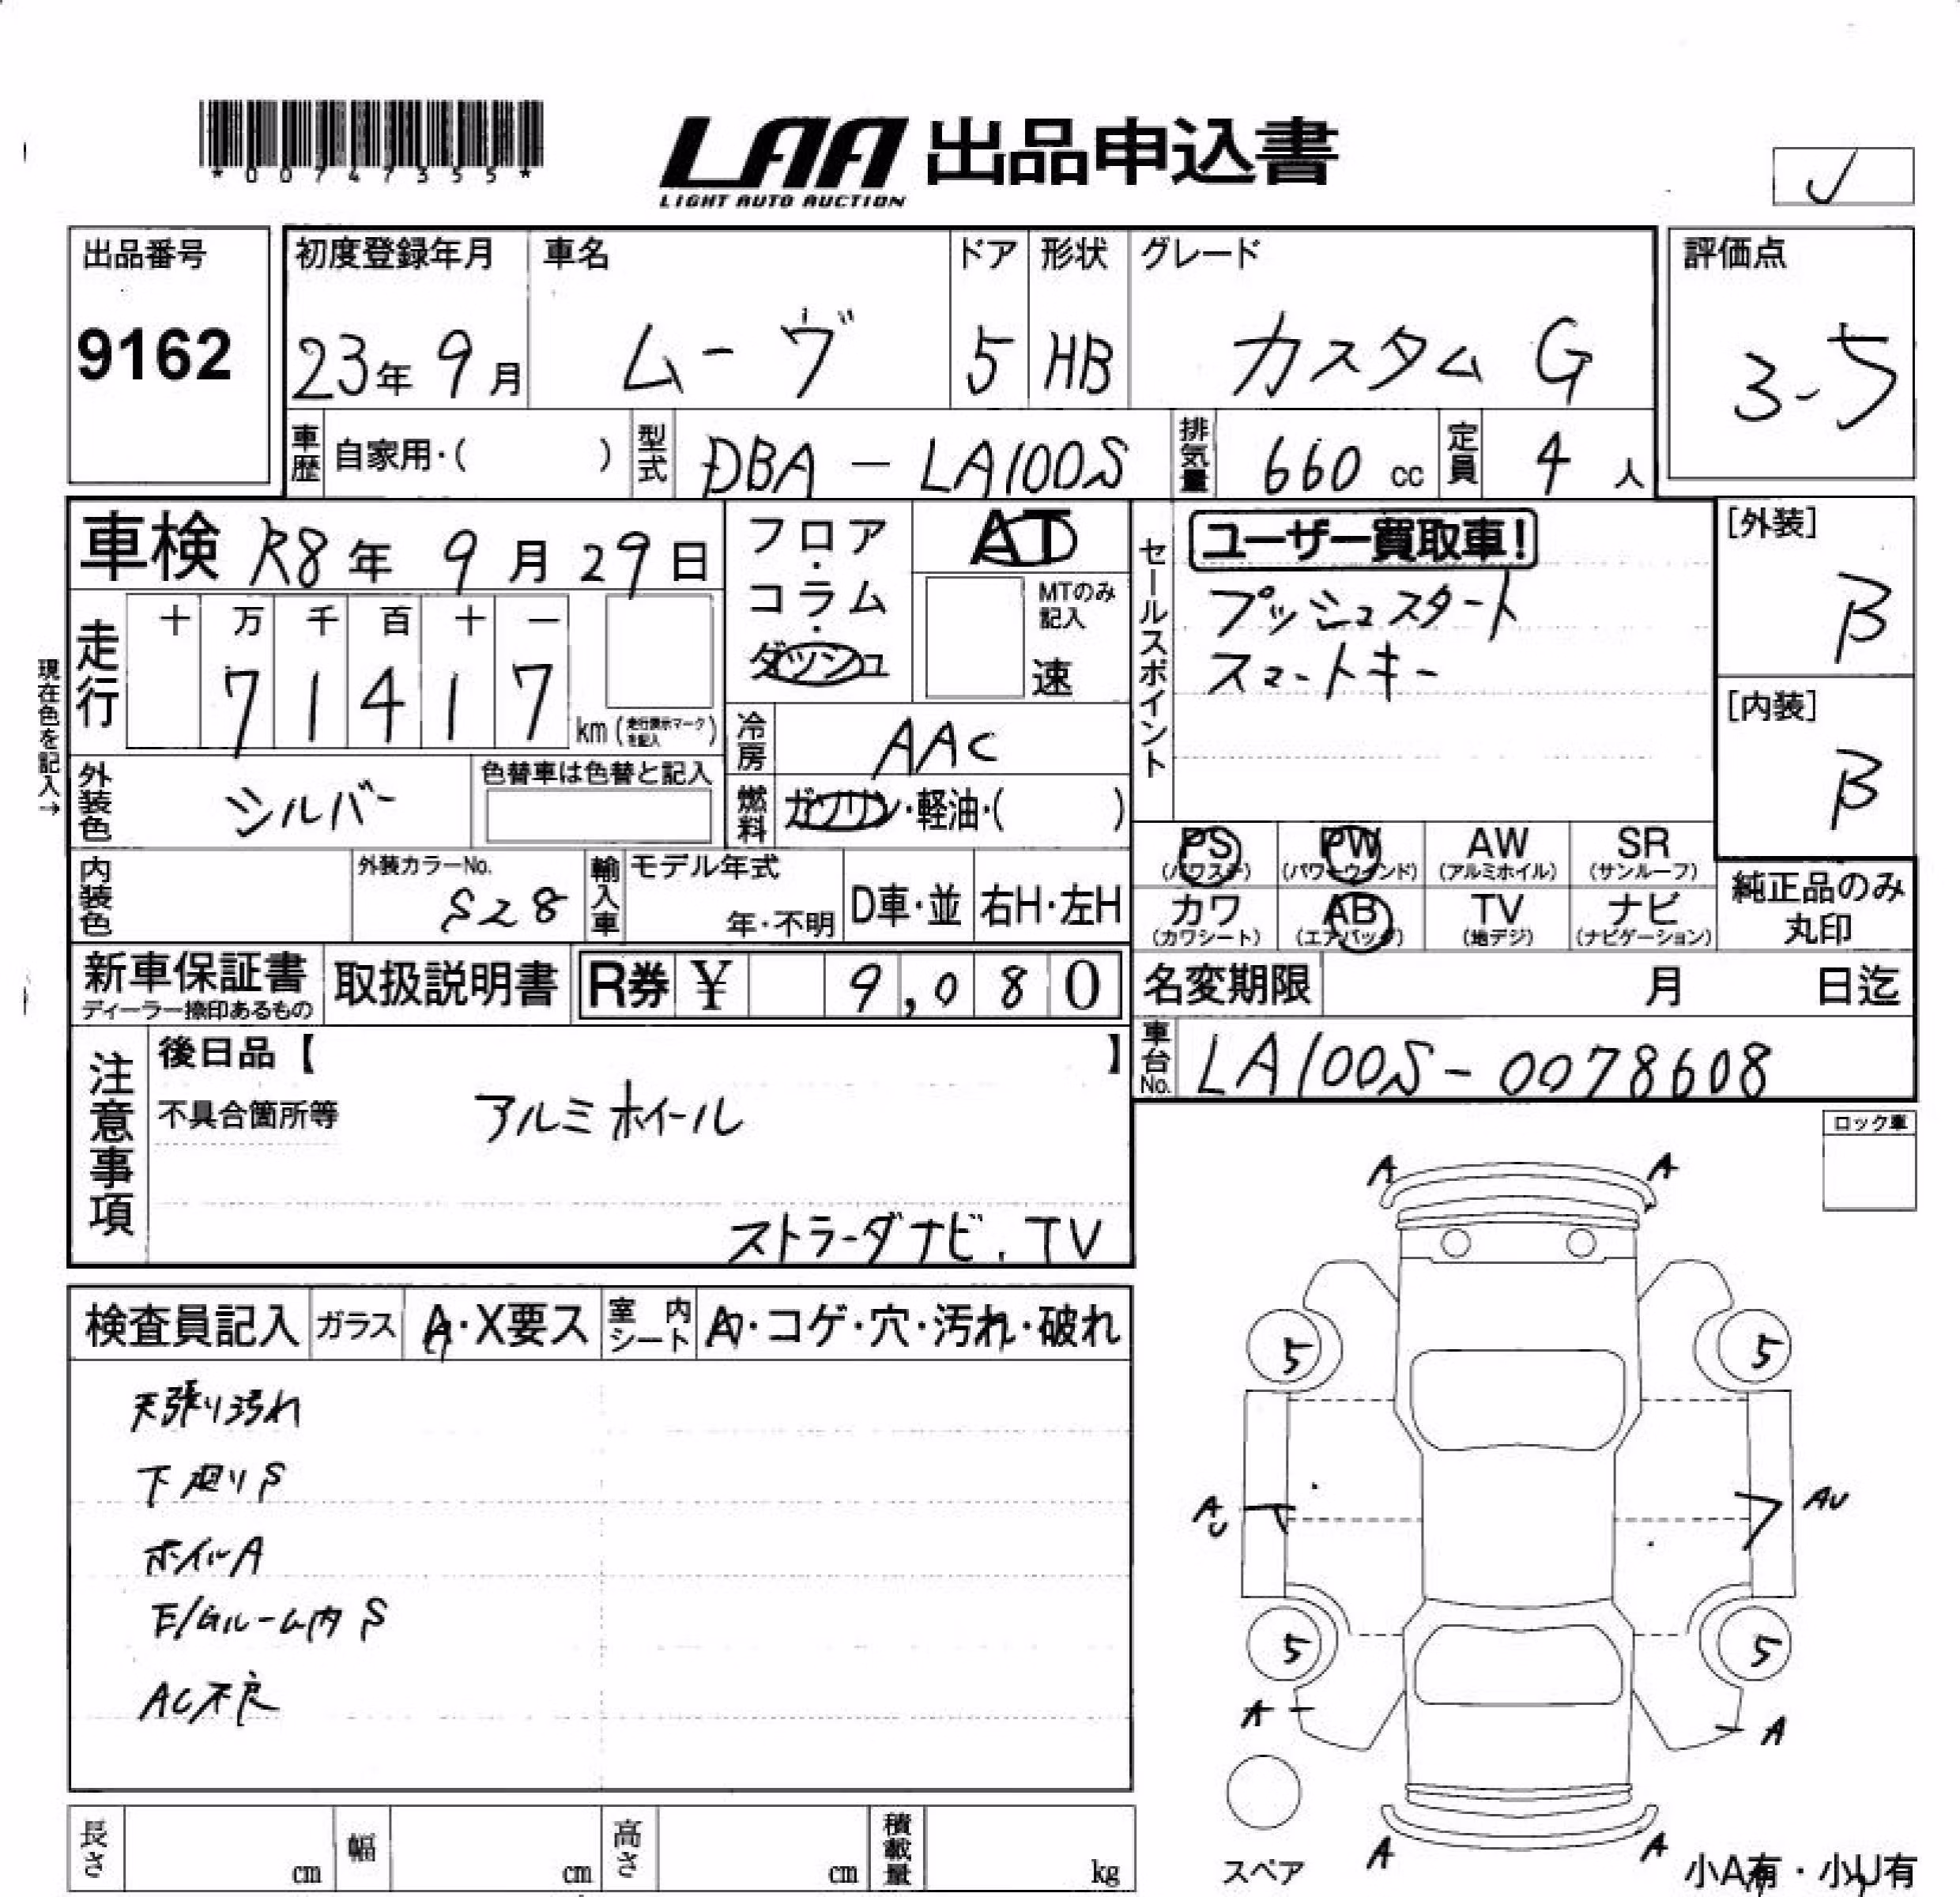 *00747355*
LAA 出品申込書
LIGHT AUTO AUCTION
出品番号 初度登録年月 車名 ドア 形状 グレード 評価点
9162 23年 9月 ムーヴ 5 HB カスタム G 3-5
車歴 自家用・( ) 型式 DBA - LA100S 排気量 660 cc 定員 4 人
車検 R8年 9月 29日 フロア・コラム・ダッシュ AT セールスポイント ユーザー買取車! [外装]
MTのみ記入 プッシュスタート B
走行 十 万 千 百 十 一 速 スマートキー
7 1 4 1 7 km (走行表示マークを記入) [内装]
現在色を記入→
冷房 AAC B
外装色 シルバー 色替車は色替と記入 燃料 ガソリン・軽油・( )
PS (パワステ) PW (パワーウインド) AW (アルミホイル) SR (サンルーフ)
内装色 外装カラーNo. S28 輸入車 モデル年式 年・不明 D車・並 右H・左H
カワ (カワシート) AB (エアバッグ) TV (地デジ) ナビ (ナビゲーション) 純正品のみ丸印
新車保証書 取扱説明書 R券 ¥ 9,080 名変期限 月 日迄
ディーラー捺印あるもの
車台No. LA100S-0078608
注意事項 後日品【 】
不具合箇所等 アルミホイール
ストラーダナビ. TV
ロック車
検査員記入 ガラス A・X要ス 室内シート A・コゲ・穴・汚れ・破れ
天張り汚れ
下廻りS
ホイルA
E/Gルーム内 S
AC不良
A A
5 5
AU AU
5 5
A A
A A
スペア 小A有・小U有
長さ cm 幅 cm 高さ cm 積載量 kg